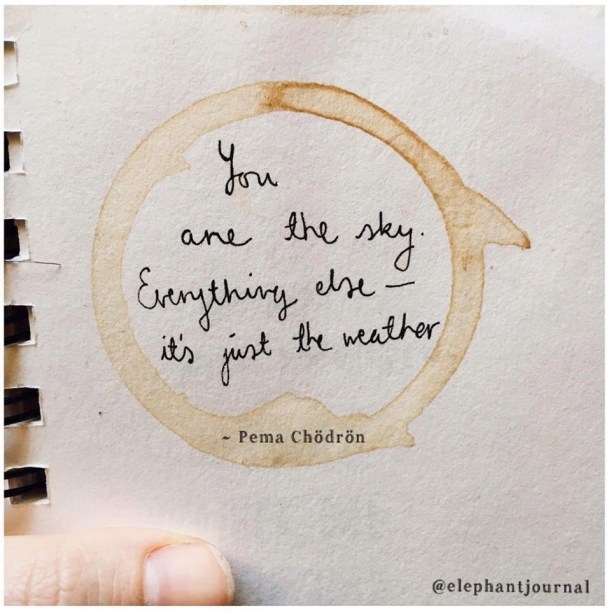 You
are the sky.
Everything else —
it's just the weather
~ Pema Chödrön
@elephantjournal